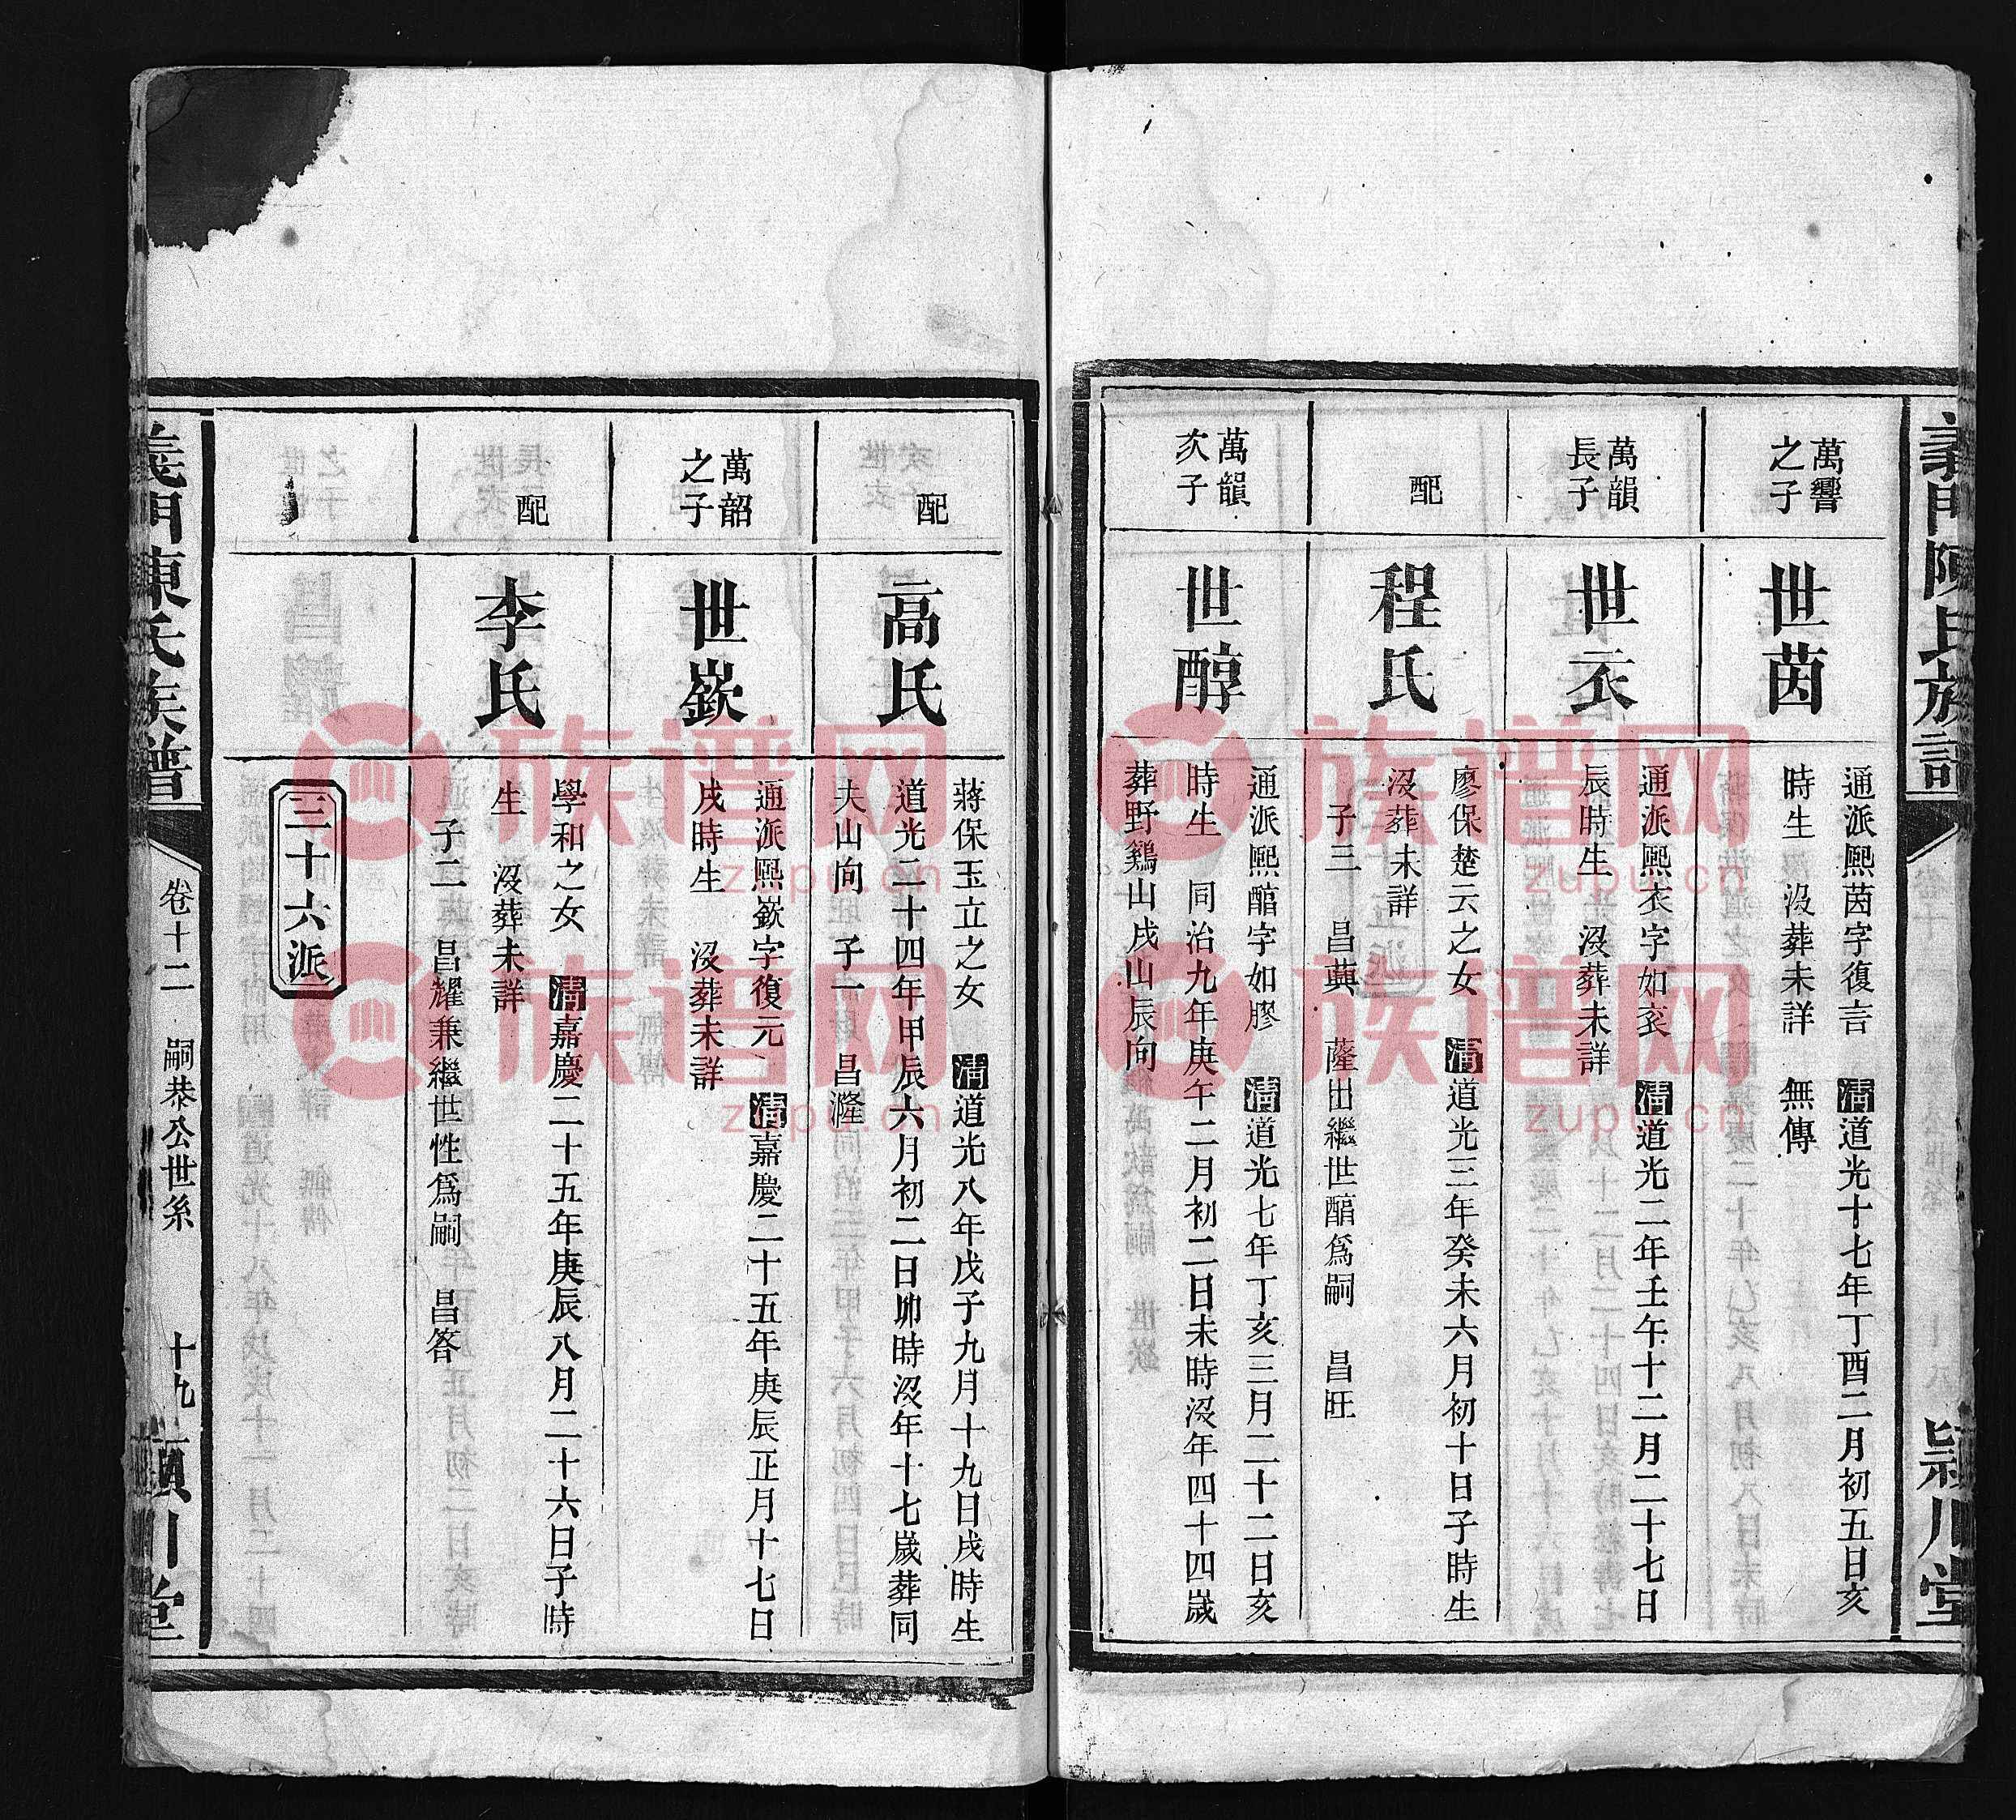 義門陳氏族譜
潁川堂
萬響
之子
世茵
通派熙茵字復言 清道光十七年丁酉二月初五日亥
時生 沒葬未詳 無傳
萬韻
長子
世衣
通派熙衣字如衮 清道光二年壬午十二月二十七日
辰時生 沒葬未詳
配
程氏
廖保楚云之女 清道光三年癸未六月初十日子時生
沒葬未詳
子三 昌蕻 薩出繼世醕爲嗣 昌旺
萬韻
次子
世醇
通派熙醕字如膠 清道光七年丁亥三月二十二日亥
時生 同治九年庚午二月初二日未時沒年四十四歲
葬野鷄山戌山辰向
配
高氏
蔣保玉立之女 清道光八年戊子九月十九日戌時生
道光二十四年甲辰六月初二日卯時沒年十七歲葬同
夫山向 子一 昌隆
萬韶
之子
世嶔
通派熙嶔字復元 清嘉慶二十五年庚辰正月十七日
戌時生 沒葬未詳
配
李氏
學和之女 清嘉慶二十五年庚辰八月二十六日子時
生 沒葬未詳
子二 昌耀兼繼世性爲嗣 昌答
三十六派
義門陳氏族譜
卷十二 嗣恭公世系 十九
潁川堂
族谱网
zupu.cn
族谱网
zupu.cn
族谱网
zupu.cn
族谱网
zupu.cn